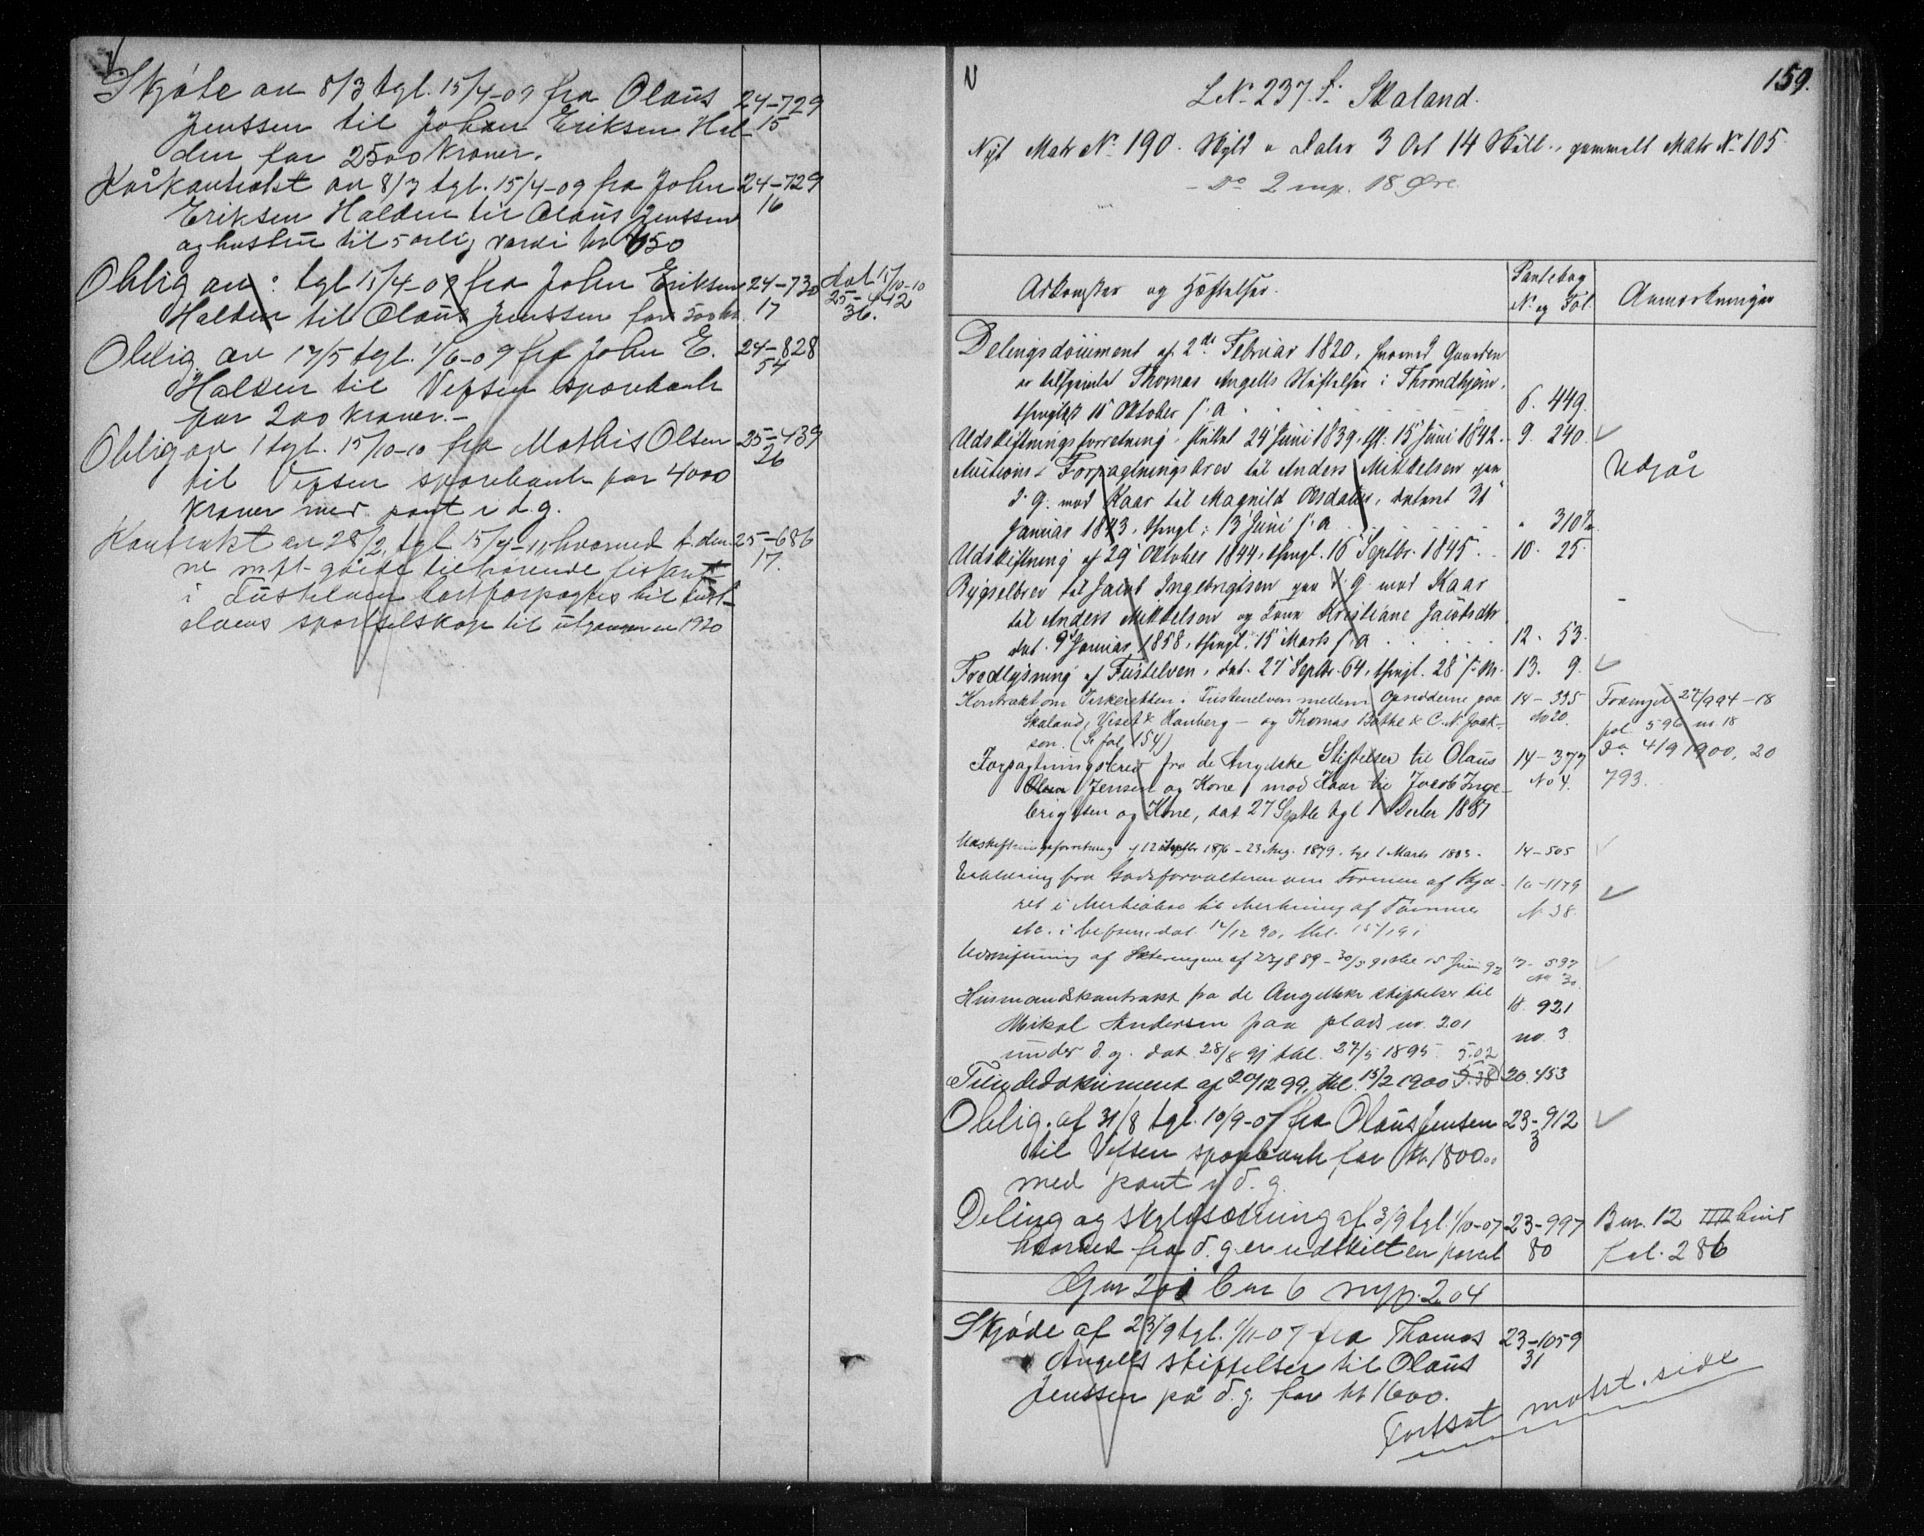 Skjøte av 8/3 tgl. 15/4-09 fra Olaus 24-729
Jenssen til Johan Eriksen Hal- 15
den for 2500 kroner.
Kårkontrakt av 8/3 tgl. 15/4-09 fra John 24-729
Eriksen Halden til Olaus Jenssen 16
og hustru til 5 årlig værdi kr 650
Oblig av : tgl 15/4-09 fra John Eriksen 24-730 Avl 15/10-10
Halden til Olaus Jenssen for 500 kr. 17 25-442
36.
Oblig av 17/5 tgl. 1/6-09 fra John E. 24-828
Halden til Vefsen sparebank 54
for 200 kroner.-
Oblig av tgl. 15/10-10 fra Mathis Olsen 25-439
til Vefsen sparebank for 4000 26
kroner med pant i d.g.
Kontrakt av 28/2 tgl 15/4-11 hvorved t. den- 25-686
ne mfl. gårde tilhørende fiskeret 17.
i Fustelven bortforpagtes til Fust-
elvens sportselskap til utgangen av 1920
159.
LNo 237. f. Skaland.
Nyt Matr No 190. Skyld " Daler 3 Ort 14 Skill., gammelt Matr No 105
- Do 2 mp. 18 Øre.
Adkomster og Hæftelser. Pantebog No og Fol Anmærkninger
Delingsdocument af 2de Februar 1820, hvorved Gaarden
er tilhjemlet Thomas Angells Stiftelser i Throndhjem,
thinglæst 15 Oktober s. a. 6. 449.
Udskiftningsforretning, sluttet 24 Juni 1839, thl. 15 Juni 1842. 9. 240.
Auctions & Forpagtningsbrev til Anders Mikkelsen paa Udgår
d. g. mod Kaar til Magnild Olsdatter, dateret 31
Januar 1843, thingl. 13 Juni s. a. " 310
Udskiftning af 29 Oktober 1844, thingl. 16 Septbr. 1845. 10. 25.
Bygselbrev til Jacob Ingebrigtsen paa d. g. mod Kaar
til Anders Mikkelsen og Kone Kristiane Jacobsdtr
dat. 9 Januar 1858, thingl. 15 Marts s. a. 12. 53.
Fredlysning af Fustelven, dat. 27 Septbr. 64, thingl. 28 s. M. 13. 9.
Kontrakt om Fiskeretten i Fustenelven mellem Opsidderne paa 14-335 Fornyet 27/9 94-18
Skaland, & Hauberg - og Thomas Bathe & C. N. Jack- No 20. fol 596 nr. 18
son. (Se fol. 154) Do 4/9 1900, 20
Forpagtningsbrev fra de Angelske Stiftelser til Olaus 14-377 793.
Jensen og Kone mod Kaar til Jacob Inge- No 4.
brigtsen og Kone, dat 27 Septbr tgl 1 Decbr 1881
Udskiftningsforretning af 12 Septbr 1876 - 23 Aug. 1879. tgl 1 Marts 1883. 14-505
Erklæring fra Godsforvalteren om Formen af 16-1179
N 38.
Udskiftning af Skteringene af 23/8 89 - 30/5 91 thl 15 Juni 92 17- 597
No 30.
Husmandskontrakt fra de Angellske stiftelser til 18. 921
Mikal Andersen paa plads nr. 201 no. 3
under d.g. dat. 28/8 91 thl. 27/5 1895. 5.02
Tiendedokument af 20/12 99, thl. 15/2 1900 5.38 20. 453
Oblig. af 31/8 tgl. 10/9-07 fra Olaus Jensen 23-912
til Vefsen sparebank for kr 1800.00 3
med pant i d. g.
Deling og skyldsætning af 3/9 tgl. 1/10-07 23-997 Bnr. 12 IIII bind
hvorved fra d.g. er udskilt en parcel 80 fol. 286
Gnr 200 bnr 6 myp. 2.04
Skjøde af 23/9 tgl. 1/11-07 fra Thomas 23-1059
Angells stiftelser til Olaus 31
Jenssen på d.g. for kr 1600.
Fortsat motst. side